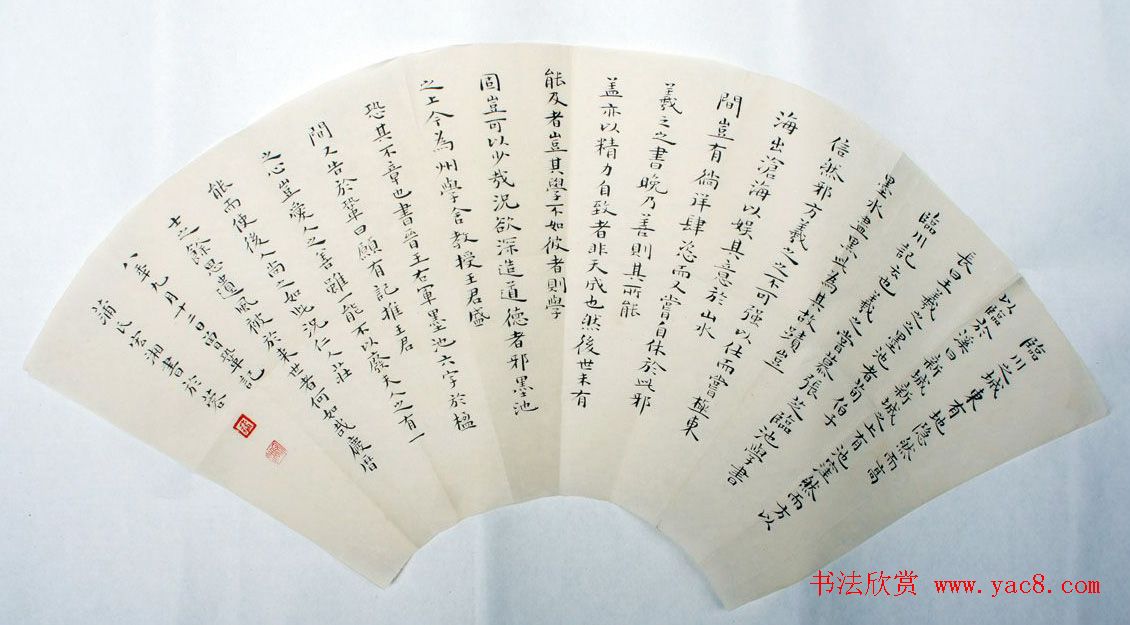 臨川之城東有地隐然而高
以臨於溪曰新城新城之上有池窪然而方以
長曰王羲之之墨池者荀伯子
臨川記云也羲之嘗慕張芝臨池學書
墨水盡黑此為其故蹟豈
信然邪方羲之之不可强以仕而嘗極東
海出滄海以娱其意於山水
間豈有徜徉肆恣而又嘗自休於此邪
羲之之書晚乃善則其所能
盖亦以精力自致者非天成也然後世未有
能及者豈其學不如彼者則學
固豈可以少哉況欲深造道德者邪墨池
之上今為州學舍教授王君盛
恐其不章也書晉王右軍墨池六字於楹
間又告於鞏曰願有記推王君
之心豈愛人之善雖一能不以廢夫人之有一
能而使後人尚之如此況仁人莊
士之餘思遺風被於來世者何如哉慶曆
八年九月十二日曾鞏記
蒲氏宏湘書於蓉
书法欣赏 www.yac8.com